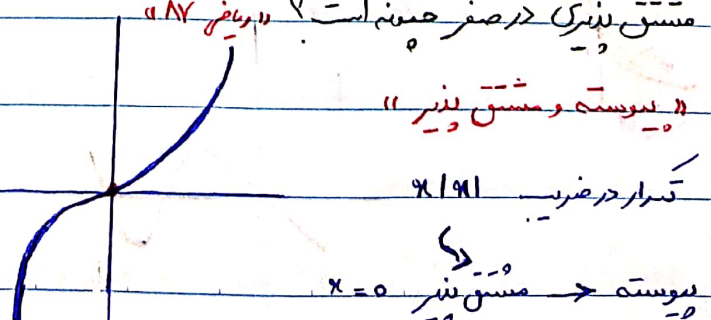 مشتق پذیری در صفر چگونه است؟ «ریاضی ۸۷»
«پیوسته و مشتق پذیر»
تکرار در ضریب x|x|
پیوسته ← مشتق پذیر x=0